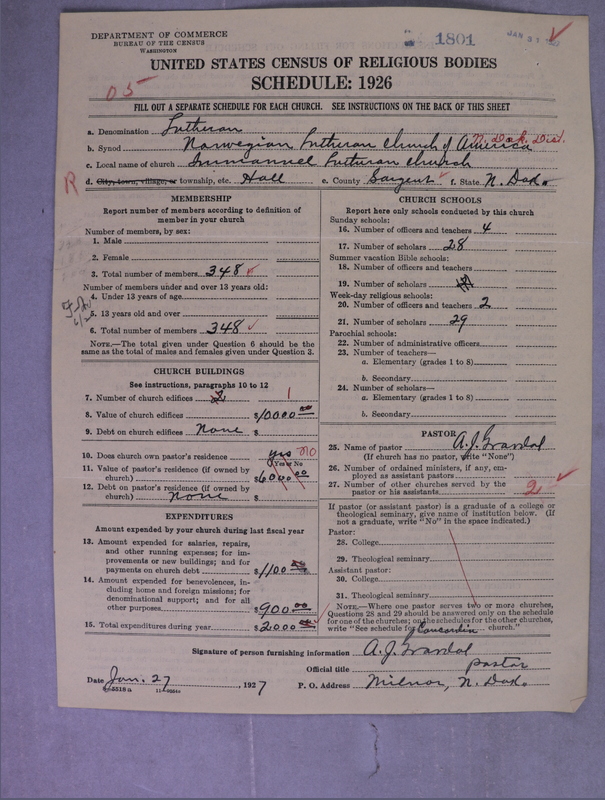 DEPARTMENT OF COMMERCE
BUREAU OF THE CENSUS
WASHINGTON
1801
JAN 31
UNITED STATES CENSUS OF RELIGIOUS BODIES
SCHEDULE: 1926
05
FILL OUT A SEPARATE SCHEDULE FOR EACH CHURCH. SEE INSTRUCTIONS ON THE BACK OF THIS SHEET
a. Denomination Lutheran
b. Synod Norwegian Lutheran Church of America N. Dak. Dist.
c. Local name of church Immanuel Lutheran Church
R
d. City, town, village, or township, etc. Hall e. County Sargent f. State N. Dak.
MEMBERSHIP
Report number of members according to definition of
member in your church
Number of members, by sex:
1. Male
2. Female
3. Total number of members 348
Number of members under and over 13 years old:
4. Under 13 years of age
5. 13 years old and over
6. Total number of members 348
NOTE.—The total given under Question 6 should be the
same as the total of males and females given under Question 3.
CHURCH BUILDINGS
See instructions, paragraphs 10 to 12
7. Number of church edifices 2 1
8. Value of church edifices $10000.00
9. Debt on church edifices None $
10. Does church own pastor's residence? yes no
Yes or No
11. Value of pastor's residence (if owned by
church) $6000.00
12. Debt on pastor's residence (if owned by
church) none $
EXPENDITURES
Amount expended by your church during last fiscal year
13. Amount expended for salaries, repairs,
and other running expenses; for im-
provements or new buildings; and for
payments on church debt $1100
14. Amount expended for benevolences, in-
cluding home and foreign missions; for
denominational support; and for all
other purposes $900.00
15. Total expenditures during year $2000
CHURCH SCHOOLS
Report here only schools conducted by this church
Sunday schools:
16. Number of officers and teachers 4
17. Number of scholars 28
Summer vacation Bible schools:
18. Number of officers and teachers
19. Number of scholars
Week-day religious schools:
20. Number of officers and teachers 2
21. Number of scholars 29
Parochial schools:
22. Number of administrative officers
23. Number of teachers—
a. Elementary (grades 1 to 8)
b. Secondary
24. Number of scholars—
a. Elementary (grades 1 to 8)
b. Secondary
PASTOR
25. Name of pastor A. J.
(If church has no pastor, write "None")
26. Number of ordained ministers, if any, em-
ployed as assistant pastors
27. Number of other churches served by the
pastor or his assistants 2
If pastor (or assistant pastor) is a graduate of a college or
theological seminary, give name of institution below. (If
not a graduate, write "No" in the space indicated.)
Pastor:
28. College
29. Theological seminary
Assistant pastor:
30. College
31. Theological seminary
NOTE.—Where one pastor serves two or more churches,
Questions 28 and 29 should be answered only on the schedule
for one of the churches; on the schedules for the other churches,
write "See schedule for Concordia church."
Signature of person furnishing information A. J.
Official title pastor
Date Jan. 27, 1927 P. O. Address Milnor, N. Dak.